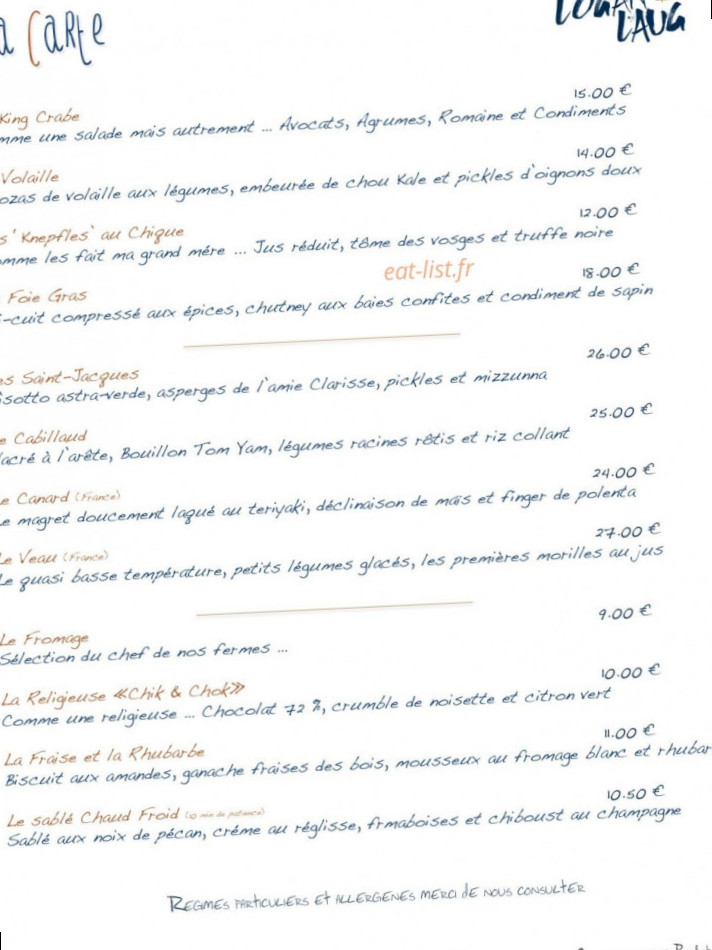 a Carte
LAUG
15.00 €
King Crabe
une salade mais autrement ... Avocats, Agrumes, Romaine et Condiments
14.00 €
Volaille
de volaille aux légumes, embeurée de chou Kale et pickles d'oignons doux
12.00 €
s' Knepfles' au Chique
les fait ma grand mère ... Jus réduit, tôme des vosges et truffe noire
eat-list.fr
18.00 €
Foie Gras
-cuit compressé aux épices, chutney aux baies confites et condiment de sapin
26.00 €
es Saint-Jacques
isotto astra-verde, asperges de l'amie Clarisse, pickles et mizzunna
25.00 €
e Cabillaud
acré à l'arête, Bouillon Tom Yam, légumes racines rôtis et riz collant
24.00 €
e Canard (France)
Le magret doucement laqué au teriyaki, déclinaison de maïs et finger de polenta
27.00 €
Le Veau (France)
Le quasi basse température, petits légumes glacés, les premières morilles au jus
9.00 €
Le Fromage
Sélection du chef de nos fermes ...
10.00 €
La Religieuse «Chik & Chok»
Comme une religieuse ... Chocolat 72 %, crumble de noisette et citron vert
11.00 €
La Fraise et la Rhubarbe
Biscuit aux amandes, ganache fraises des bois, mousseux au fromage blanc et rhubar
10.50 €
Le sablé Chaud Froid (10 min de patience)
Sablé aux noix de pécan, crème au réglisse, frmaboises et chiboust au champagne
Regimes particuliers et allergenes merci de nous consulter